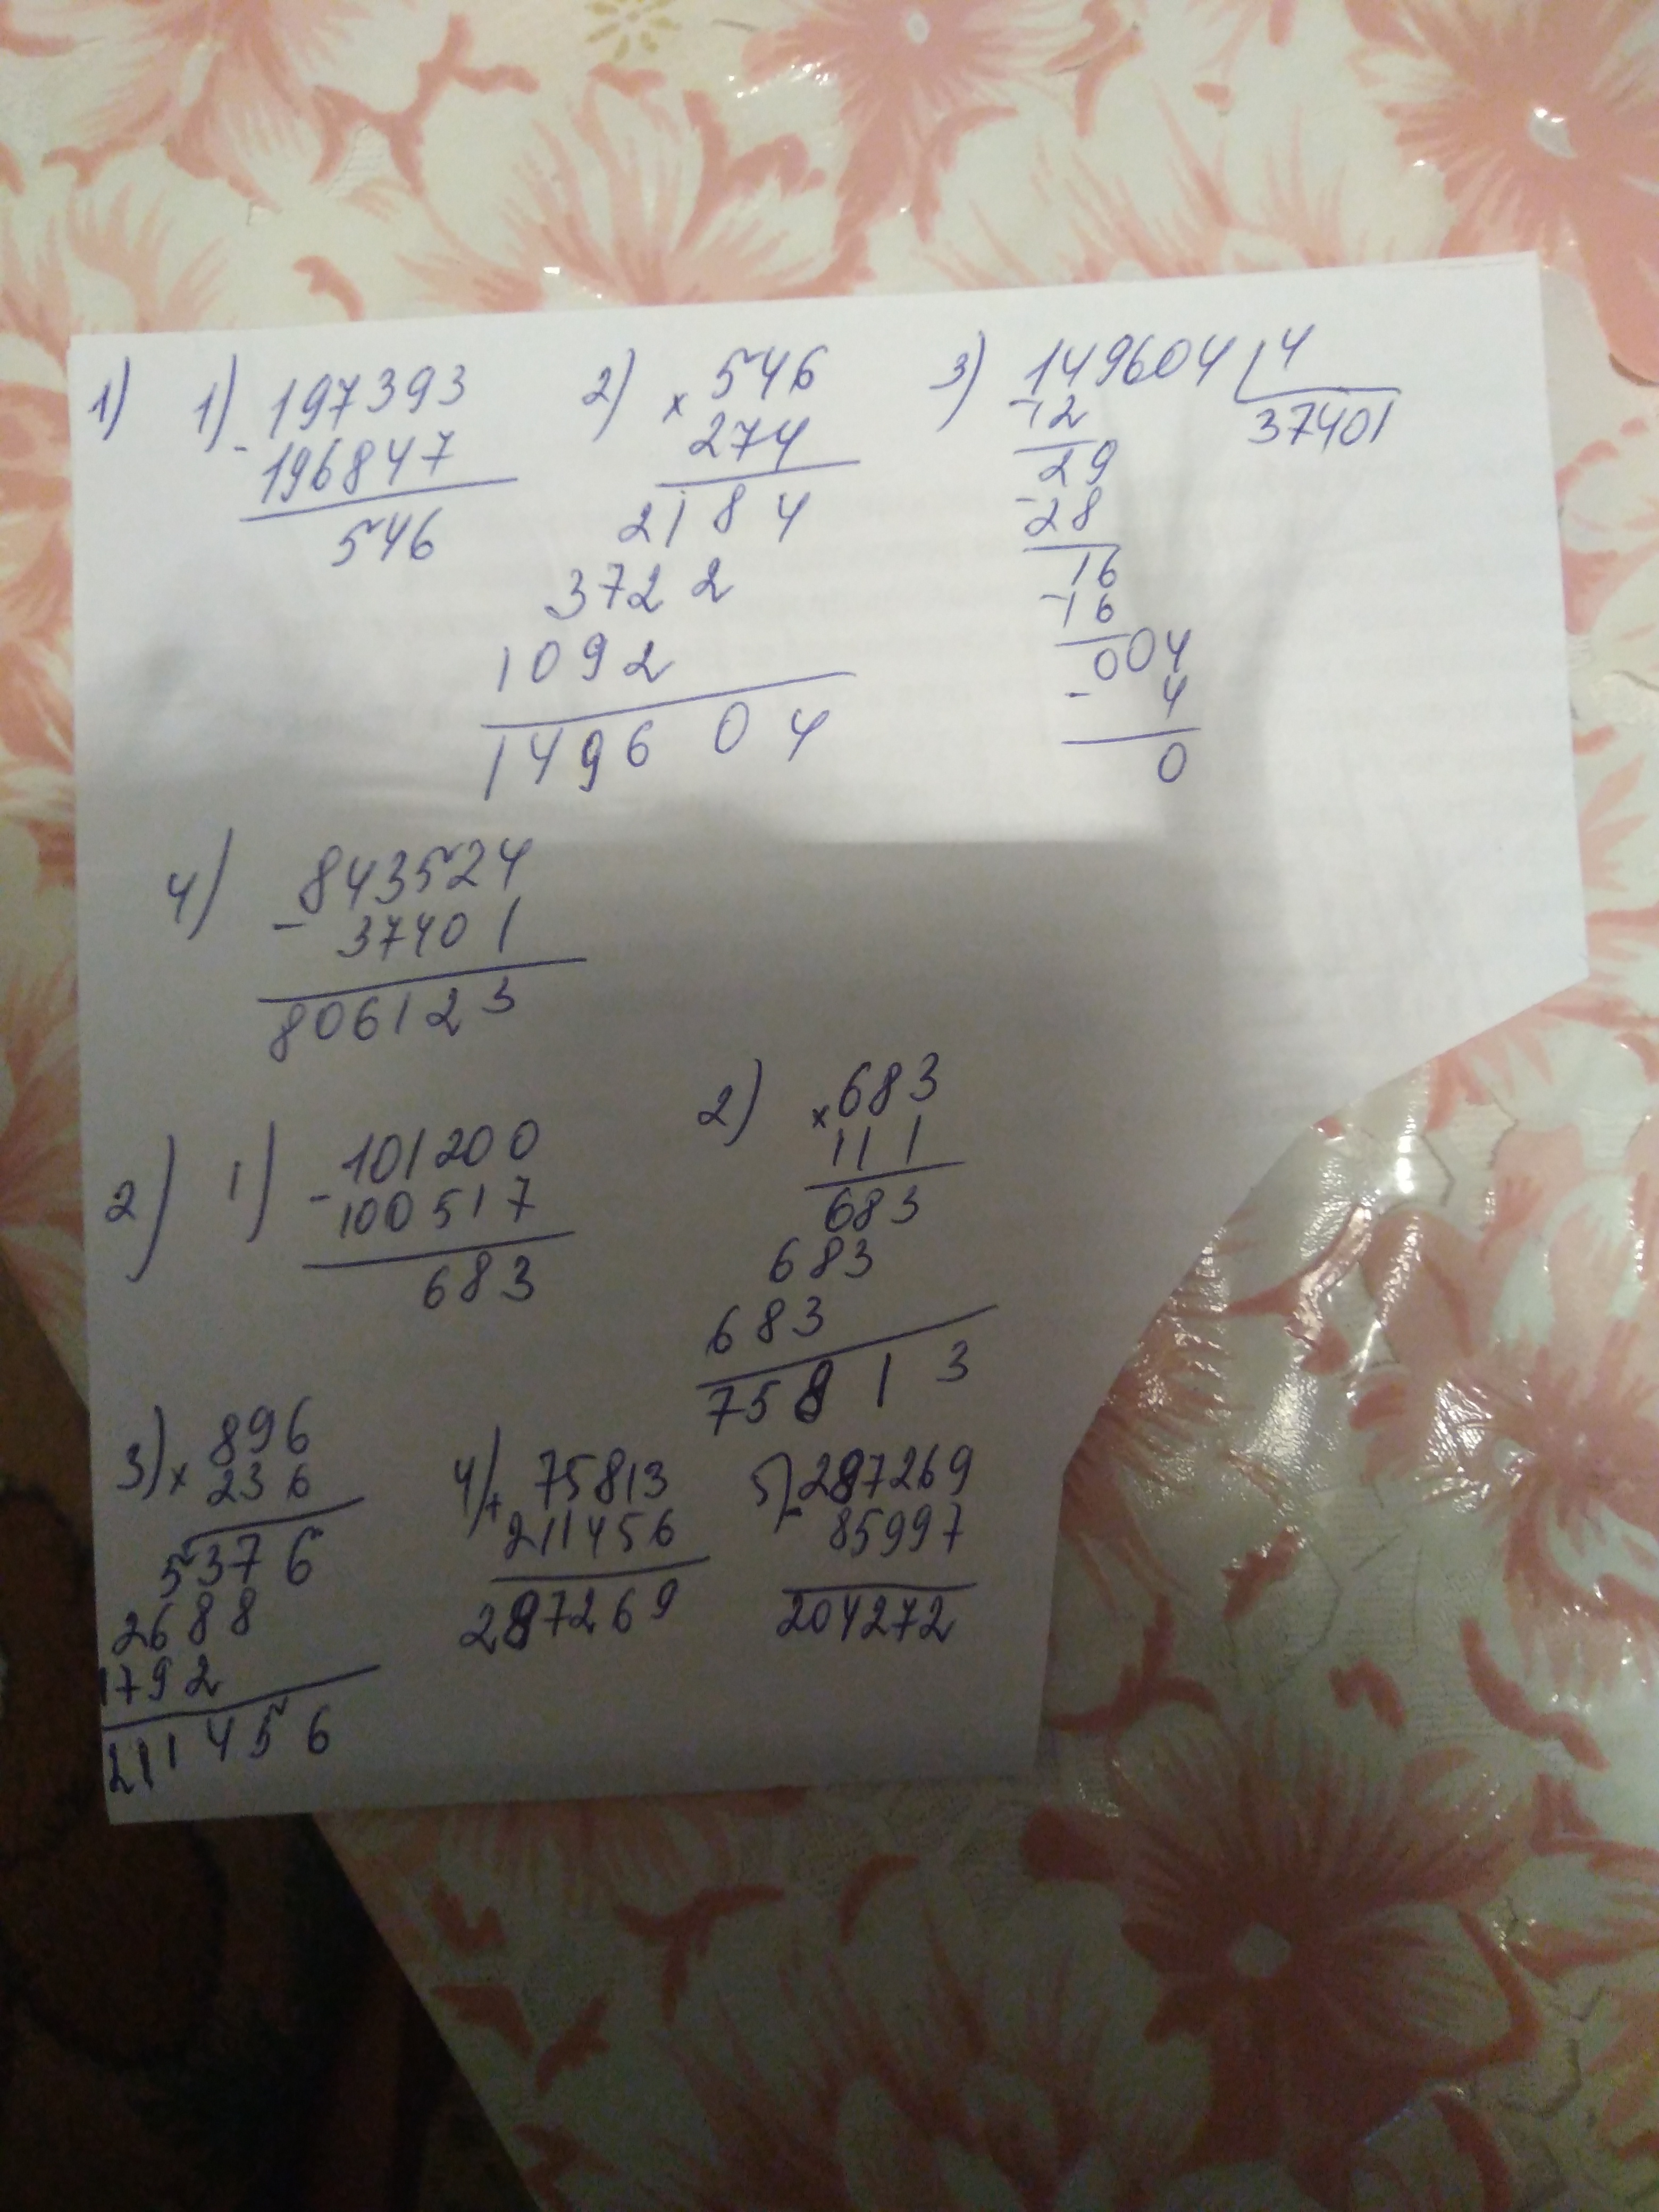 1) 1) 197393
- 196847
546
2) × 546
274
2184
3722
1092
149604
3) 149604 | 4
-12 37401
29
-28
16
-16
004
- 4
0
4) 843524
- 37401
806123
2) 1) 101200
- 100517
683
2) × 683
111
683
683
683
75813
3) × 896
236
5376
2688
1792
211456
4) + 75813
211456
287269
5) - 287269
85997
204272